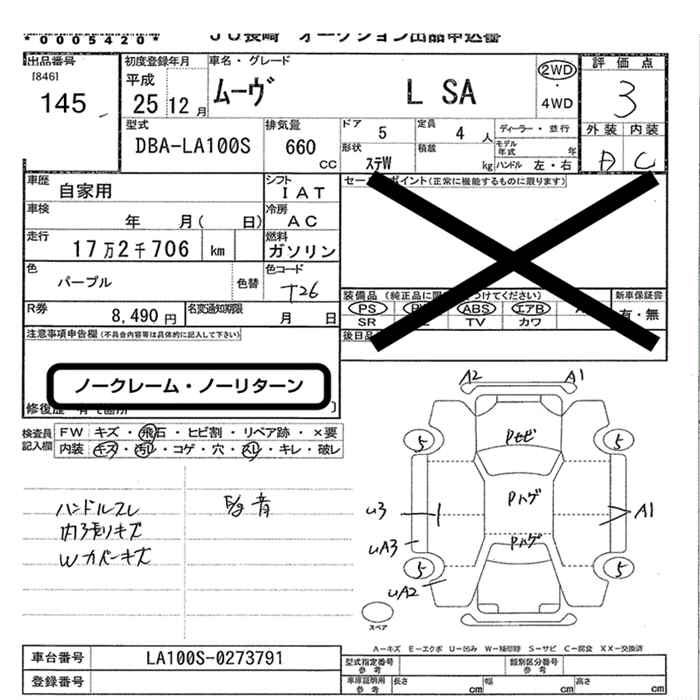 *0005420* JU長崎 オークション出品申込書
出品番号 初度登録年月 車名・グレード 評価点
[846] 平成
145 25 12月 ムーヴ L SA 2WD・4WD 3
型式 排気量 ドア 5 定員 4人 ディーラー・並行 外装 内装
DBA-LA100S 660 CC 形状 ステW 積載 kg モデル年式 年 ハンドル 左・右 B C
車歴 自家用 シフト IAT セールスポイント(正常に機能するものに限ります)
車検 年 月( 日) 冷房 AC
走行 17万2千706 km 燃料 ガソリン
色 パープル 色替 色コード T26
装備品 新車保証書
R券 8,490円 名変通知期限 月 日 PS ABS エアB 有・無
SR TV カワ
注意事項申告欄(不具合内容等は具体的に記入して下さい) 後日品
ノークレーム・ノーリターン
検査員記入欄 FW キズ・飛石・ヒビ割・リペア跡・×要
内装 キズ・汚レ・コゲ・穴・スレ・キレ・破レ
A2 A1
5 5
Pセビ
ハンドルスレ
内張りキズ
Wカバーキズ
Pハゲ
U3 A1
Pハゲ
UA3
5 5
UA2
スペア
A−キズ E−エクボ U−凹み W−補修跡 S−サビ C−腐食 XX−交換済
車台番号 LA100S-0273791 型式指定番号参考 類別区分番号参考
登録番号 車庫証明用参考 長さ cm 幅 cm 高さ cm